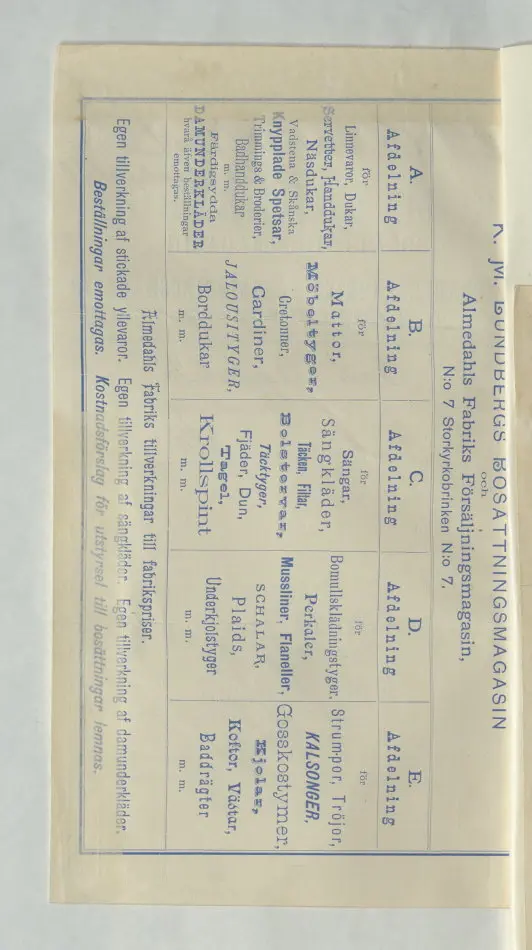 K. M. LUNDBERGS BOSÄTTNINGSMAGASIN
och
Almedahls Fabriks Försäljningsmagasin,
N:o 7 Storkyrkobrinken N:o 7.
A.
Afdelning
för
Linnevaror, Dukar,
Servetter, Handdukar,
Näsdukar,
Vadstena & Skånska
Knypplade Spetsar,
Trimmings & Broderier,
Badhanddukar
m. m.
Färdigsydda
DAMUNDERKLÄDER
hvarå äfven beställningar
emottagas.
B.
Afdelning
för
Mattor,
Möbeltyger,
Cretonner,
Gardiner,
JALOUSITYGER,
Borddukar
m. m.
C.
Afdelning
för
Sängar,
Sängkläder,
Täcken, Filtar,
Bolstervar,
Täcktyger,
Fjäder, Dun,
Tagel,
Krollspint
m. m.
D.
Afdelning
för
Bomullsklädningstyger.
Perkaler,
Mussliner, Flaneller,
SCHALAR,
Plaids,
Underkjolstyger
m. m.
E.
Afdelning
för
Strumpor, Tröjor,
KALSONGER,
Gosskostymer,
Kjolar,
Koftor, Västar,
Baddrägter
m. m.
Almedahls Fabriks tillverkningar till fabrikspriser.
Egen tillverkning af stickade yllevaror. Egen tillverkning af sängkläder. Egen tillverkning af damunderkläder.
Beställningar emottagas. Kostnadsförslag för utstyrsel till bosättningar lemnas.